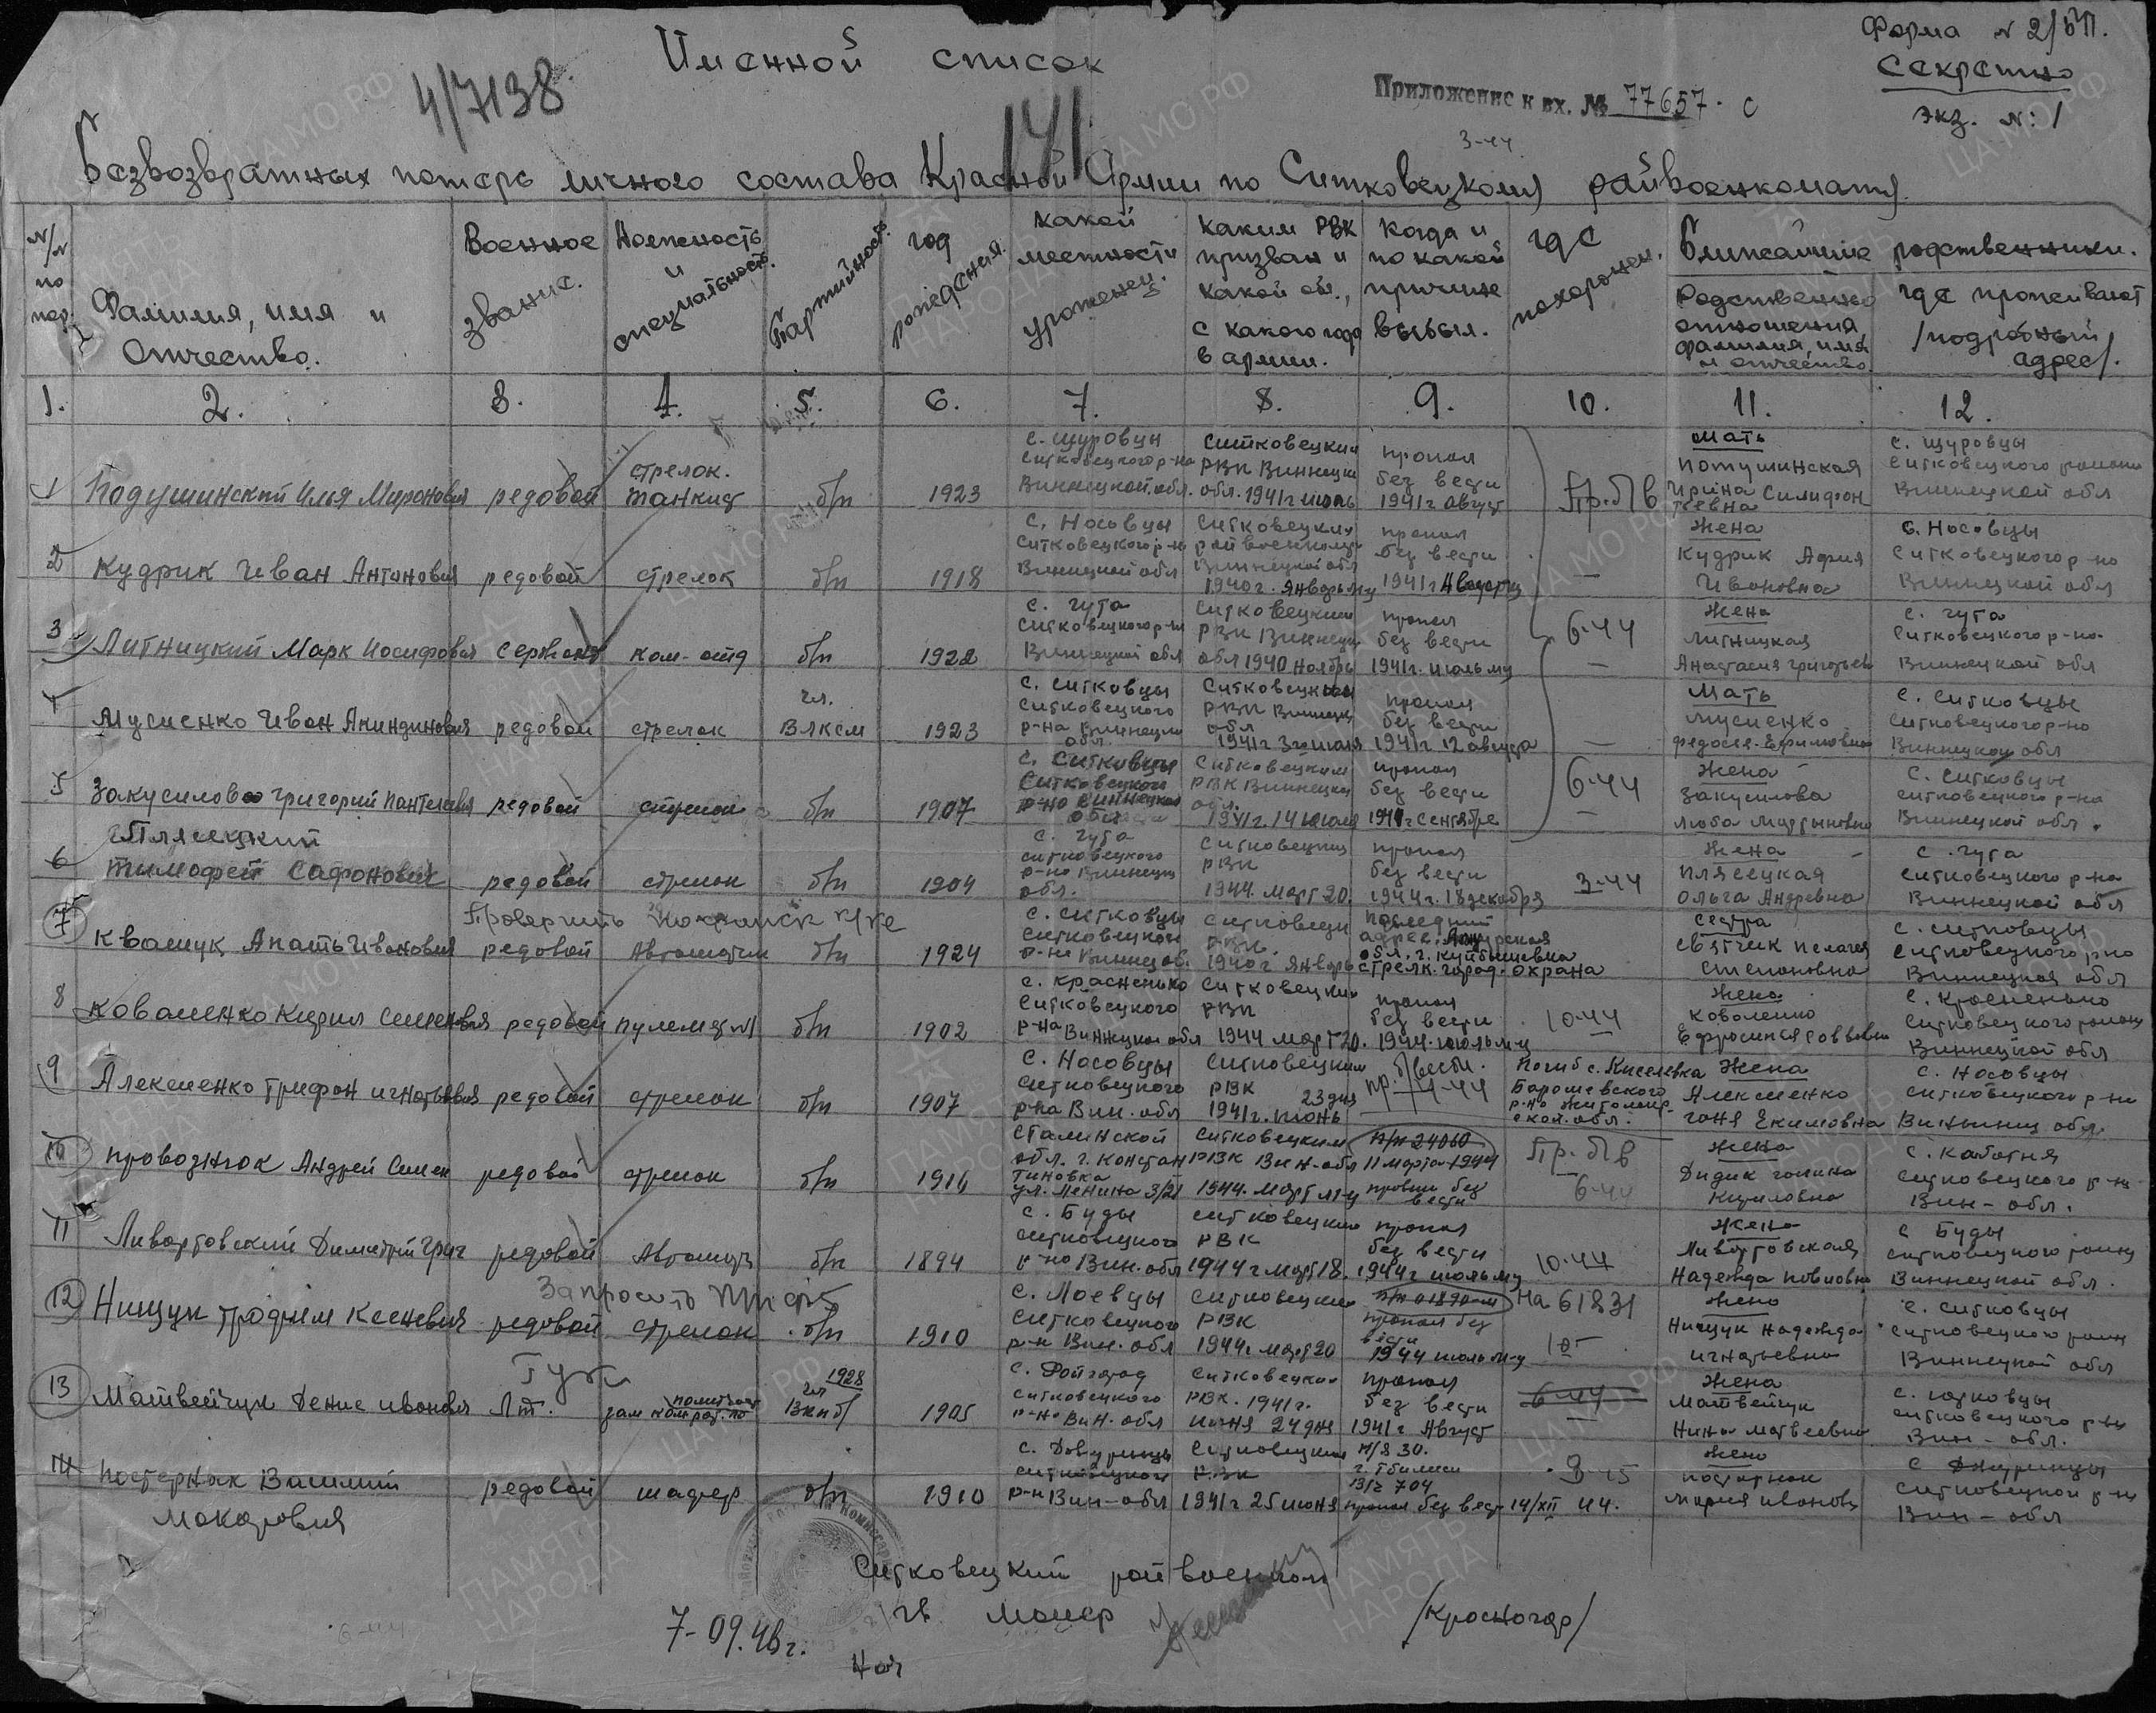 Форма № 2/БП.
Секретно
экз. №: 1
Именной список
4/7138
141
Приложение к вх. № 77657. с
3-44
Безвозвратных потерь личного состава Красной Армии по Ситковецкому райвоенкомату
№/№ по пор.
Фамилия, имя и отчество.
Военное звание.
Должность и специальность.
Партийность.
год рождения.
какой местности уроженец.
каким РВК призван и какой об., с какого года в армии.
когда и по какой причине выбыл.
где похоронен.
Ближайшие родственники.
Родственные отношения, фамилия, имя и отчество
где проживает /подробный адрес/.
1. 2. 3. 4. 5. 6. 7. 8. 9. 10. 11. 12.
1 Подушинский Илья Миронович редовой стрелок. танкист б/п 1923 с. Щуровцы Ситковецкого р-на Винницкой обл. Ситковецкий РВК Винницкой обл. 1941 г июль пропал без вести 1941 г август Пр. б/в Мать Потушинская Ирина Силифонтьевна с. Щуровцы Ситковецкого района Винницкой обл
2 Кудрик Иван Антонович редовой стрелок б/п 1918 с. Носовцы Ситковецкого р-на Винницкой обл Ситковецким райвоенкомат Винницкой обл 1940 г. Январь м-ц пропал без вести 1941 г Август м-ц — Жена Кудрик Афия Ивановна с. Носовцы Ситковецкого р-на Винницкой обл
3 Литницкий Марк Иосифович Сержант ком-отд б/п 1922 с. Гута Ситковецкого р-на Винницкой обл Ситковецким РВК Винницк. обл 1940 Ноябрь пропал без вести 1941 г. июль м-ц 6-44 — Жена Литницкая Анастасия Григорьев с. Гута Ситковецкого р-на Винницкой обл
4 Мусиенко Иван Акиндинович редовой стрелок чл. ВЛКСМ 1923 с. Ситковцы Ситковецкого р-на Винницк. обл. Ситковецким РВК Винницк обл 1941 г 3 июля пропал без вести 1941 г 12 августа — Мать Мусиенко Федосья Ефимовна с. Ситковцы Ситковецкого р-на Винницкой обл
5 Закусилов Григорий Пантелеевич редовой стрелок б/п 1907 с. Ситковцы Ситковецкого р-на Винницкой области Ситковецким РВК Винницкой обл. 1941 г. 14 июля пропал без вести 1941 г сентябре 6-44 — Жена Закусилова Люба Мартыновна с. Ситковцы Ситковецкого р-на Винницкой обл.
6 Плясецкий Тимофей Сафонович редовой стрелок б/п 1904 с. Гута Ситковецкого р-на Винницк обл. Ситковецким РВК 1944. март 20. пропал без вести 1944 г. 18 декабря 3-44 Жена Плясецкая Ольга Андревна с. Гута Ситковецкого р-на Винницкой обл
Проверить
7 Квашук Апать Иванович редовой Автоматчик б/п 1924 с. Ситковцы Ситковецкого р-на Винницк об. Ситковецк РВК 1940 г январь последний адрес: Амурская обл. г. Куйбышевка стрелк. город. охрана Сестра Святчик Пелагея Степановна с. Ситковцы Ситковецкого р-на Винницкая обл
8 Коваленко Кирил Семенович редовой пулеметч б/п 1902 с. Красненько Ситковецкого р-на Винницкой обл Ситковецким РВК 1944 март 20. пропал без вести 1944. июль м-ц 10-44 Жена Коваленко Ефросиния Саввовна с. Красненько Ситковецкого района Винницкой обл
9 Алексиенко Трифон Игнатьевич редовой стрелок б/п 1907 с. Носовцы Ситковецкого р-на Вин. обл Ситковецким РВК 1941 г. июнь 23 дня пр. б/вести. 4-44 Погиб с. Киселевка Барашевского р-на Житомирской обл. Жена Алексиенко Ганя Екимовна с. Носовцы Ситковецкого р-на Винниц обл.
10 Проводнюк Андрей Симон редовой стрелок б/п 1916 Сталинской обл. г. Константиновка ул. Ленина 3/21 Ситковецким РВК Вин-обл 1944. март м-ц п/п 24060 11 марта 1944 пропал без вести Пр. б/в 6-44 Жена Дидик Галина Кириловна с. Каботня Ситковецкого р-на Вин-обл.
11 Ливартовский Димитрий Григ редовой Автоматч б/п 1894 с. Буды Ситковецкого р-на Вин. обл Ситковецким РВК 1944 г март 18. пропал без вести 1944 г июль м-ц 10-44 Жена Ливартовская Надежда Павловна с Буды Ситковецкого района Винницкой обл.
Запросить
12 Нищук Трофим Ксеневич редовой стрелок б/п 1910 с. Лоевцы Ситковецкого р-н Вин. обл Ситковецким РВК 1944 г. март 20 п/п 01890-м пропал без вести 1944 июль м-ц На 61831 10- Жена Нищук Надежда Игнатьевна с. Ситковцы Ситковецкого района Винницкой обл
13 Матвейчук Денис Иванович Лт. зам ком рот. по политчаст чл ВКПб 1928 1905 с. Райгород Ситковецкого р-на Вин. обл Ситковецким РВК. 1941 г. июня 24 дня пропал без вести 1941 г Август 6-44 — Жена Матвейчук Нина Матвеевна с. Ситковцы Ситковецкого р-на Вин-обл.
14 Постернак Василий Макарович редовой шафер б/п 1910 с. Джуринцы Ситковецкого р-н Вин-обл Ситковецким РВК 1941 г 25 июня п/я 30. г. Тбилиси 13/2 704 пропал без вест 14/XII 44. 3-45 Жена Постарнак Мария Ивановн с Джуринцы Ситковецкого р-на Вин-обл
Ситковецкий райвоенком
гв майор /Красногор/
7-09.46 г.
Нач
6-44
ПАМЯТЬ НАРОДА
ЦАМО.РФ